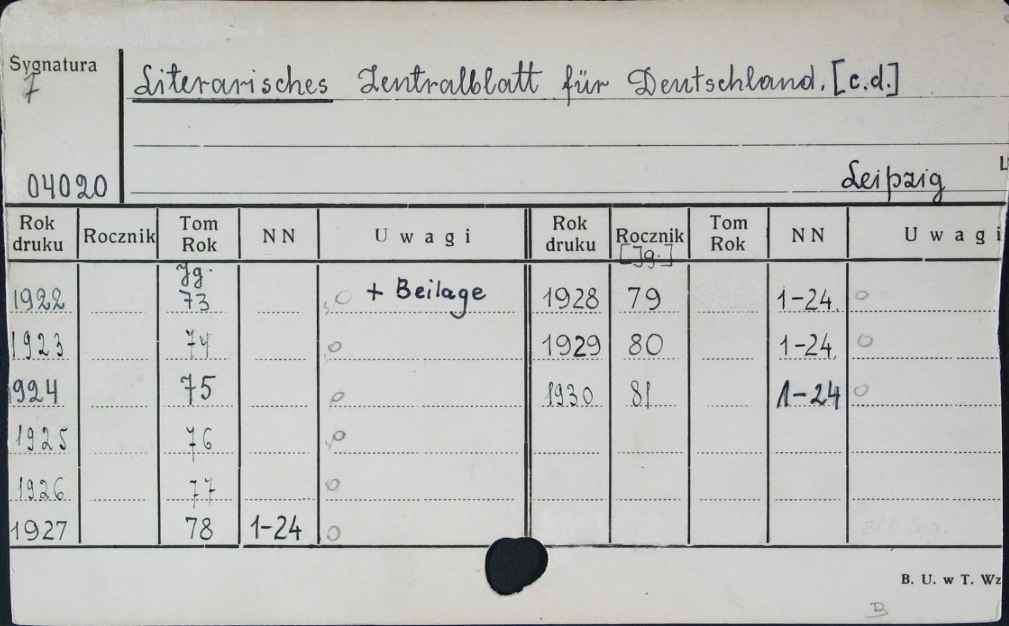 Sygnatura
7
Literarisches Zentralblatt für Deutschland. [c.d.]
04020
Leipzig
L
Rok druku Rocznik Tom Rok NN Uwagi Rok druku Rocznik [Jg.] Tom Rok NN Uwagi
Jg.
1922 73 o + Beilage 1928 79 1-24. o
1923 74 o 1929 80 1-24. o
1924 75 o 1930 81 1-24 o
1925 76 o
1926 77 o
1927 78 1-24 o
B. U. w T. Wz
B